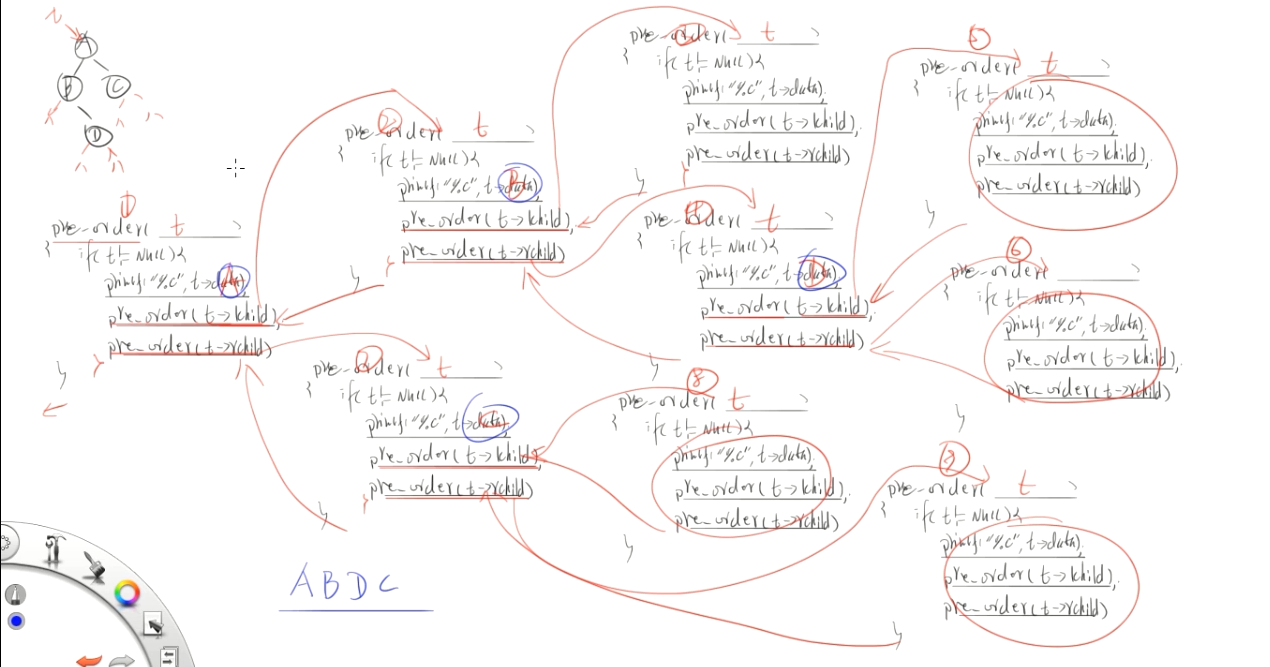 t
A
B
C
D
①
pre_order( t )
{
if( t != NULL){
printf("%c", t->data);
A
pre_order(t->lchild);
pre_order(t->rchild)
}
}
②
pre_order( t )
{
if( t != NULL){
printf("%c", t->data);
B
pre_order(t->lchild);
pre_order(t->rchild)
}
}
③
pre_order( t )
{
if( t != NULL){
printf("%c", t->data);
pre_order(t->lchild);
pre_order(t->rchild)
}
}
④
pre_order( t )
{
if( t != NULL){
printf("%c", t->data);
D
pre_order(t->lchild);
pre_order(t->rchild)
}
⑤
pre_order( t )
{
if( t != NULL){
printf("%c", t->data);
pre_order(t->lchild);
pre_order(t->rchild)
}
⑥
pre_order( t )
{
if( t != NULL){
printf("%c", t->data);
pre_order(t->lchild);
pre_order(t->rchild)
}
pre_order( t )
{
if( t != NULL){
printf("%c", t->data);
C
pre_order(t->lchild);
pre_order(t->rchild)
}
}
⑧
pre_order( t )
{
if( t != NULL){
printf("%c", t->data);
pre_order(t->lchild);
pre_order(t->rchild)
}
pre_order( t )
{
if( t != NULL){
printf("%c", t->data);
pre_order(t->lchild);
pre_order(t->rchild)
}
A B D C